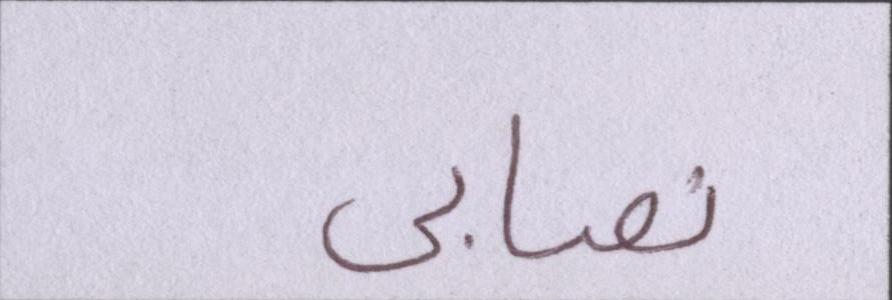 نصابی